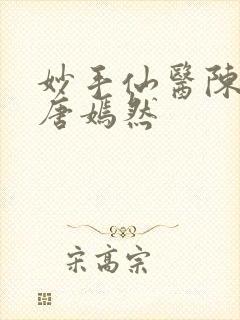 妙手仙醫陳
唐嫣然
宋高宗